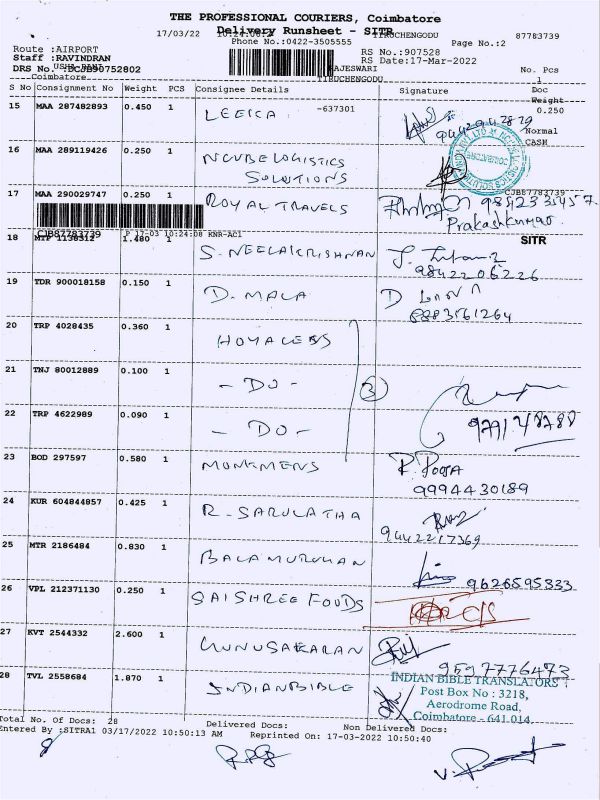 THE PROFESSIONAL COURIERS, Coimbatore
Delivery Runsheet - SITR
17/03/22 TIRUCHENGODU 87783739
Phone No.:0422-3505555 Page No.:2
Route :AIRPORT RS No.:907528
Staff :RAVINDRAN RS Date:17-Mar-2022
DRS No. RAJESWARI No. Pcs
Coimbatore TIRUCHENGODU 1
S No Consignment No Weight PCS Consignee Details Signature Doc
Weight
15 MAA 287482893 0.450 1 LEEICA -637301 0.250
Normal
CASH
16 MAA 289119426 0.250 1 NCUBE LOGISTICS
SOLUTIONS
17 MAA 290029747 0.250 1 ROYAL TRAVELS CJB87783739
Prakashkumar
CJB87783739 P 17-03 10:24:08 KNR-AC1 SITR
18 MTP 1138312 1.480 1 S. NEELAKRISHNAN
9842206226
19 TDR 900018158 0.150 1 D. MALA
8883161264
20 TRP 4028435 0.360 1 HOYALENS
21 TNJ 80012889 0.100 1 - DO - 3
22 TRP 4622989 0.090 1 - DO -
23 BOD 297597 0.580 1 MONKMENS
9994430189
24 KUR 604844857 0.425 1 R. SARULATHA
9442217369
25 MTR 2186484 0.830 1 BALAMURUHAN
9626595333
26 VPL 212371130 0.250 1 SAISHREE FOODS
27 KVT 2544332 2.600 1 GUNUSAKARAN
9597776473
28 TVL 2558684 1.870 1 INDIANBIBLE
INDIAN BIBLE TRANSLATORS
Post Box No : 3218,
Aerodrome Road,
Coimbatore - 641 014.
Total No. Of Docs: 28 Delivered Docs: Non Delivered Docs:
Entered By :SITRA1 03/17/2022 10:50:13 AM Reprinted On : 17-03-2022 10:50:40